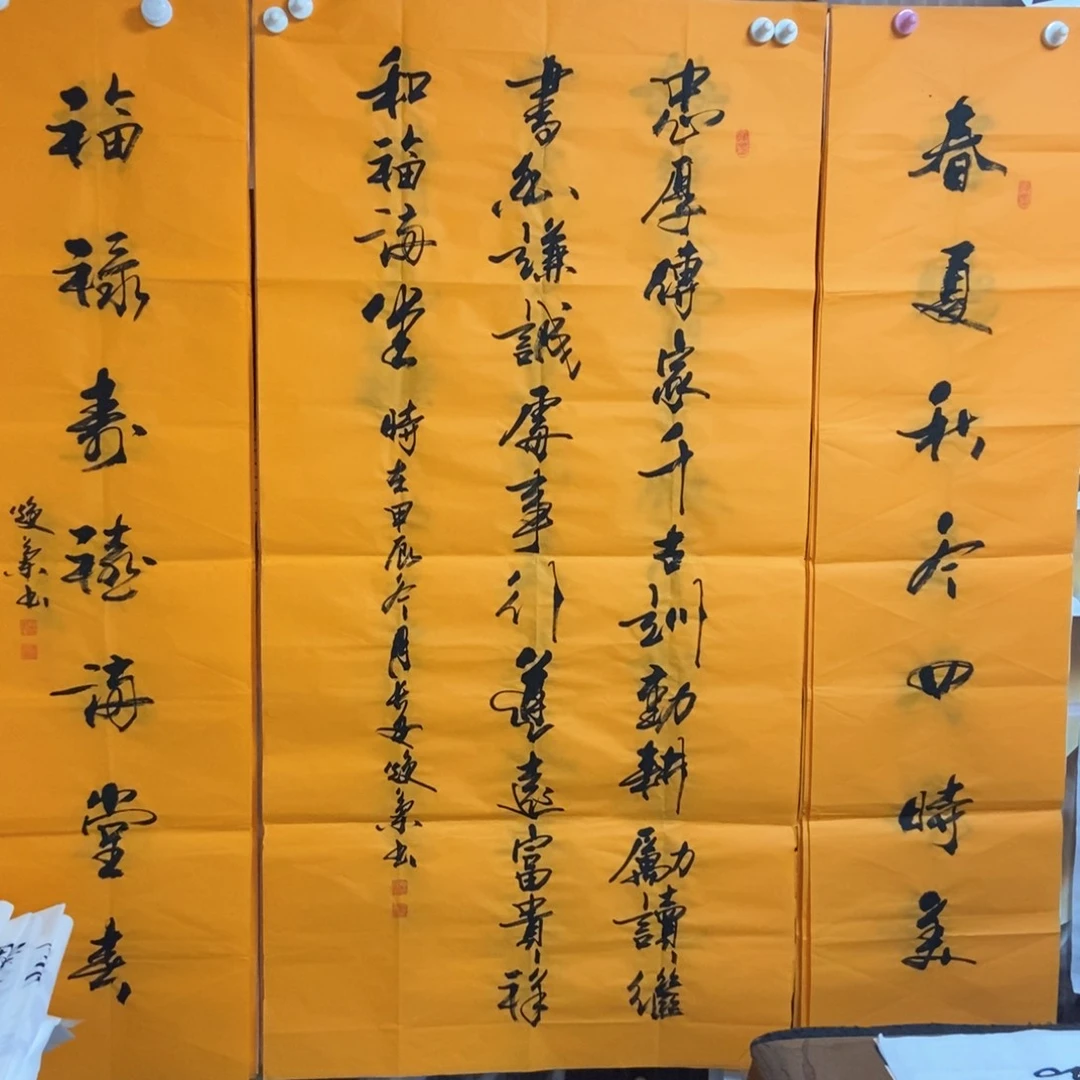 春夏秋冬四時美
忠厚傳家千古訓勤耕勵讀繼
書香謙誠處事行遠富貴祥
和福滿堂時在甲辰冬月長安煥書
福祿壽禧滿堂春
煥書